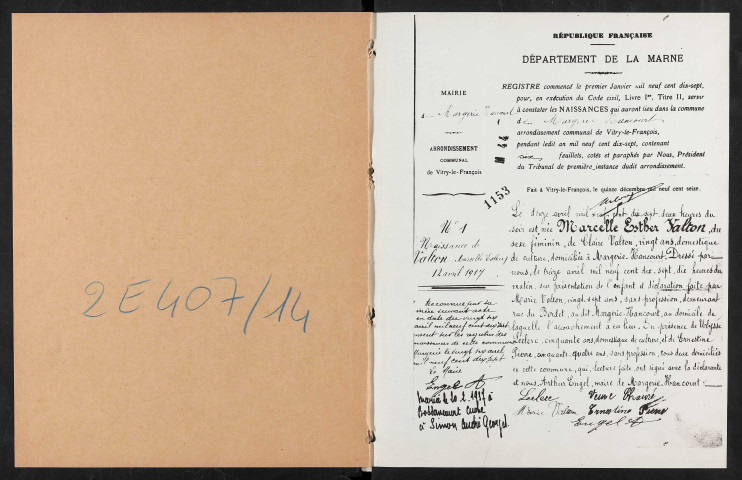 2E407/14
RÉPUBLIQUE FRANÇAISE
DÉPARTEMENT DE LA MARNE
MAIRIE
de Margerie Hancourt
ARRONDISSEMENT
COMMUNAL
de Vitry-le-François
REGISTRE commencé le premier Janvier mil neuf cent dix-sept,
pour, en exécution du Code civil, Livre Ier, Titre II, servir
à constater les NAISSANCES qui auront lieu dans la commune
de Margerie Hancourt
arrondissement communal de Vitry-le-François,
pendant ledit an mil neuf cent dix-sept, contenant
feuillets, cotés et paraphés par Nous, Président
du Tribunal de première instance dudit arrondissement.
Fait à Vitry-le-François, le quinze décembre mil neuf cent seize.
1153
N° 1
Naissance de
Valton Marcelle Esther
12 avril 1917
Reconnue par sa
mère suivant acte
en date du vingt six
avril mil neuf cent dix sept
inscrit sur les registres des
naissances de cette commune
Margerie le vingt six avril
mil neuf cent dix sept
Le Maire
Engel A
Mariée le 20.2.1937 à
à Simon André Georges.
Le avril mil neuf cent dix sept deux heures du
soir est née Marcelle Esther Valton, du
sexe féminin, de Claire Valton, vingt ans, domestique
de culture, domiciliée à Margerie-Hancourt. Dressé par
nous, le treize avril mil neuf cent dix-sept, dix heures du
matin, sur présentation de l'enfant et déclaration faite par
Marie Valton, vingt-sept ans, sans profession, demeurant
rue du Bordet, au dit Margerie-Hancourt, au domicile de
laquelle l'accouchement a eu lieu. En présence de Ulysse
Leclerc, cinquante ans, domestique de culture, et de Ernestine
Pierre, cinquante-quatre ans, sans profession, tous deux domiciliés
en cette commune, qui, lecture faite, ont signé avec la déclarante
et nous, Arthur Engel, maire de Margerie-Hancourt.
Leclerc Veuve
Marie Valton Ernestine Pierre
Engel A